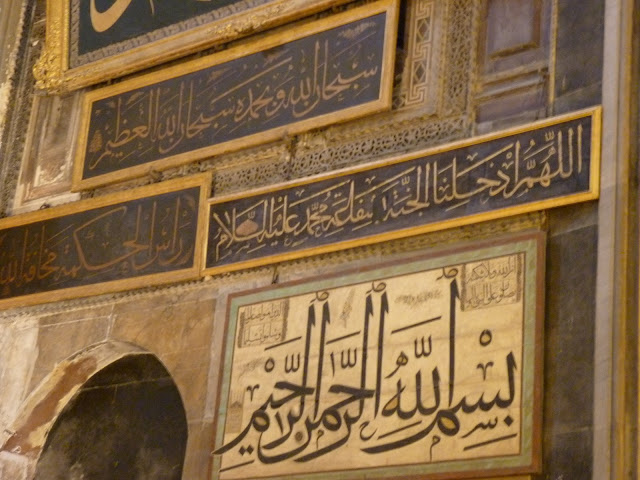 سبحان الله وبحمده سبحان الله العظيم
اللهم ادخلنا الجنة بشفاعة محمد عليه السلام
راس الحكمة مخافة الله
بسم الله الرحمن الرحيم